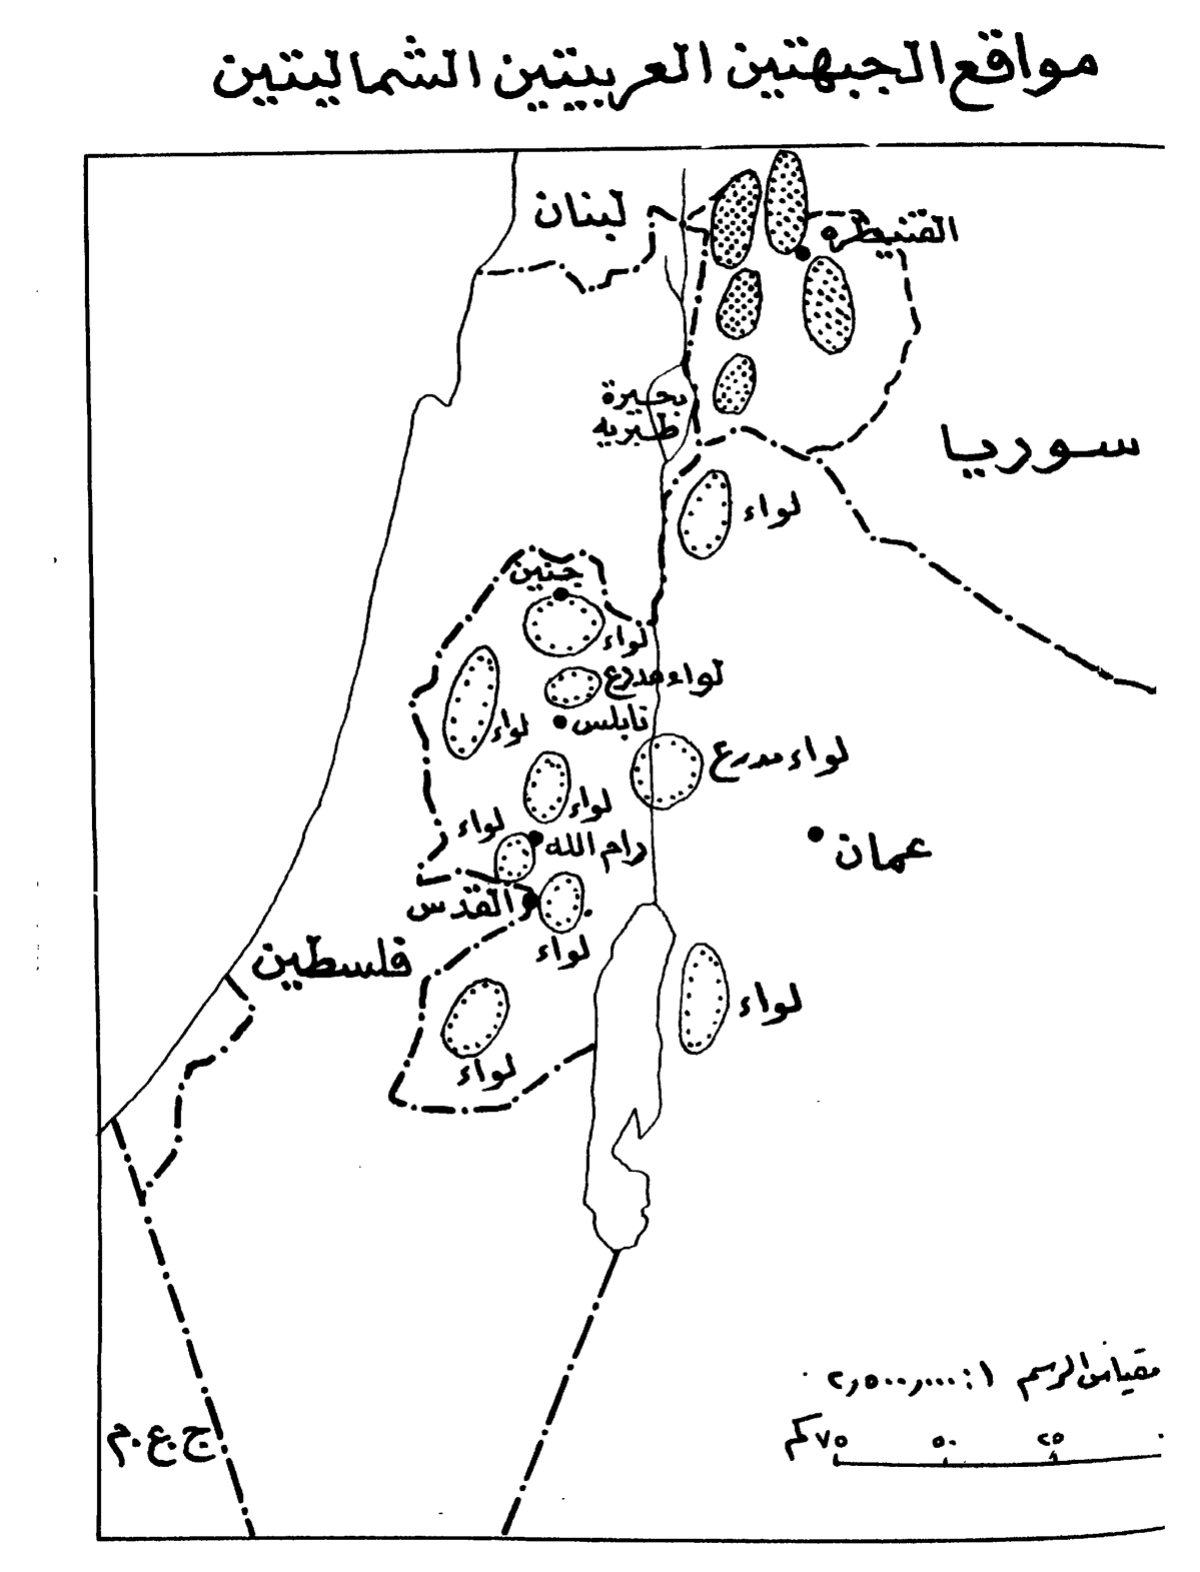 مواقع الجبهتين العربيتين الشماليتين
لبنان
القنيطرة
بحيرة
طبريه
سوريا
لواء
جنين
لواء
لواء مدرع
نابلس
لواء
لواء مدرع
لواء
لواء
رام الله
عمان
القدس
لواء
فلسطين
لواء
لواء
مقياس الرسم ١ : ٢,٥٠٠,٠٠٠
٠ ٢٥ ٥٠ ٧٥ كم
ج.ع.م